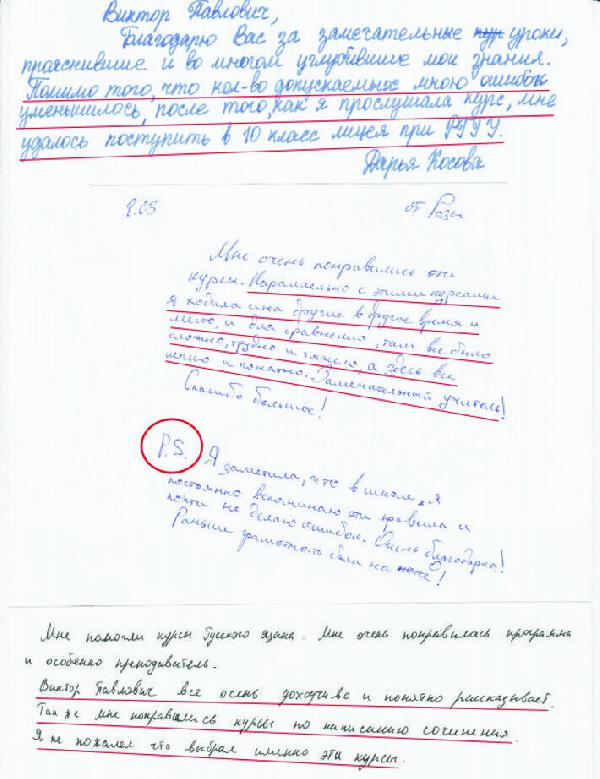 Виктор Павлович,
Благодарю Вас за замечательные уроки,
прояснившие и во многом углубившие мои знания.
Помимо того, что кол-во допускаемых мною ошибок
уменьшилось, после того, как я прослушала курс, мне
удалось поступить в 10 класс лицея при РГГУ.
Дарья Косова
от Розы
Мне очень понравились эти
курсы. Параллельно с этими курсами
я ходила и на другие в другое время и
место, и для сравнения, там всё было
сложно, трудно и тяжело, а здесь все
ясно и понятно. Замечательный учитель!
Спасибо большое!
P.S. Я заметила, что в школе я
постоянно вспоминаю эти правила и
почти не делаю ошибок. Очень благодарна!
Раньше грамотность была на !
Мне помогли курсы Русского языка. Мне очень понравилась программа
и особенно преподаватель.
Виктор Павлович все осень доходчиво и понятно рассказывает.
Так же мне понравились курсы по написанию сочинения.
Я не пожалел что выбрал именно эти курсы.